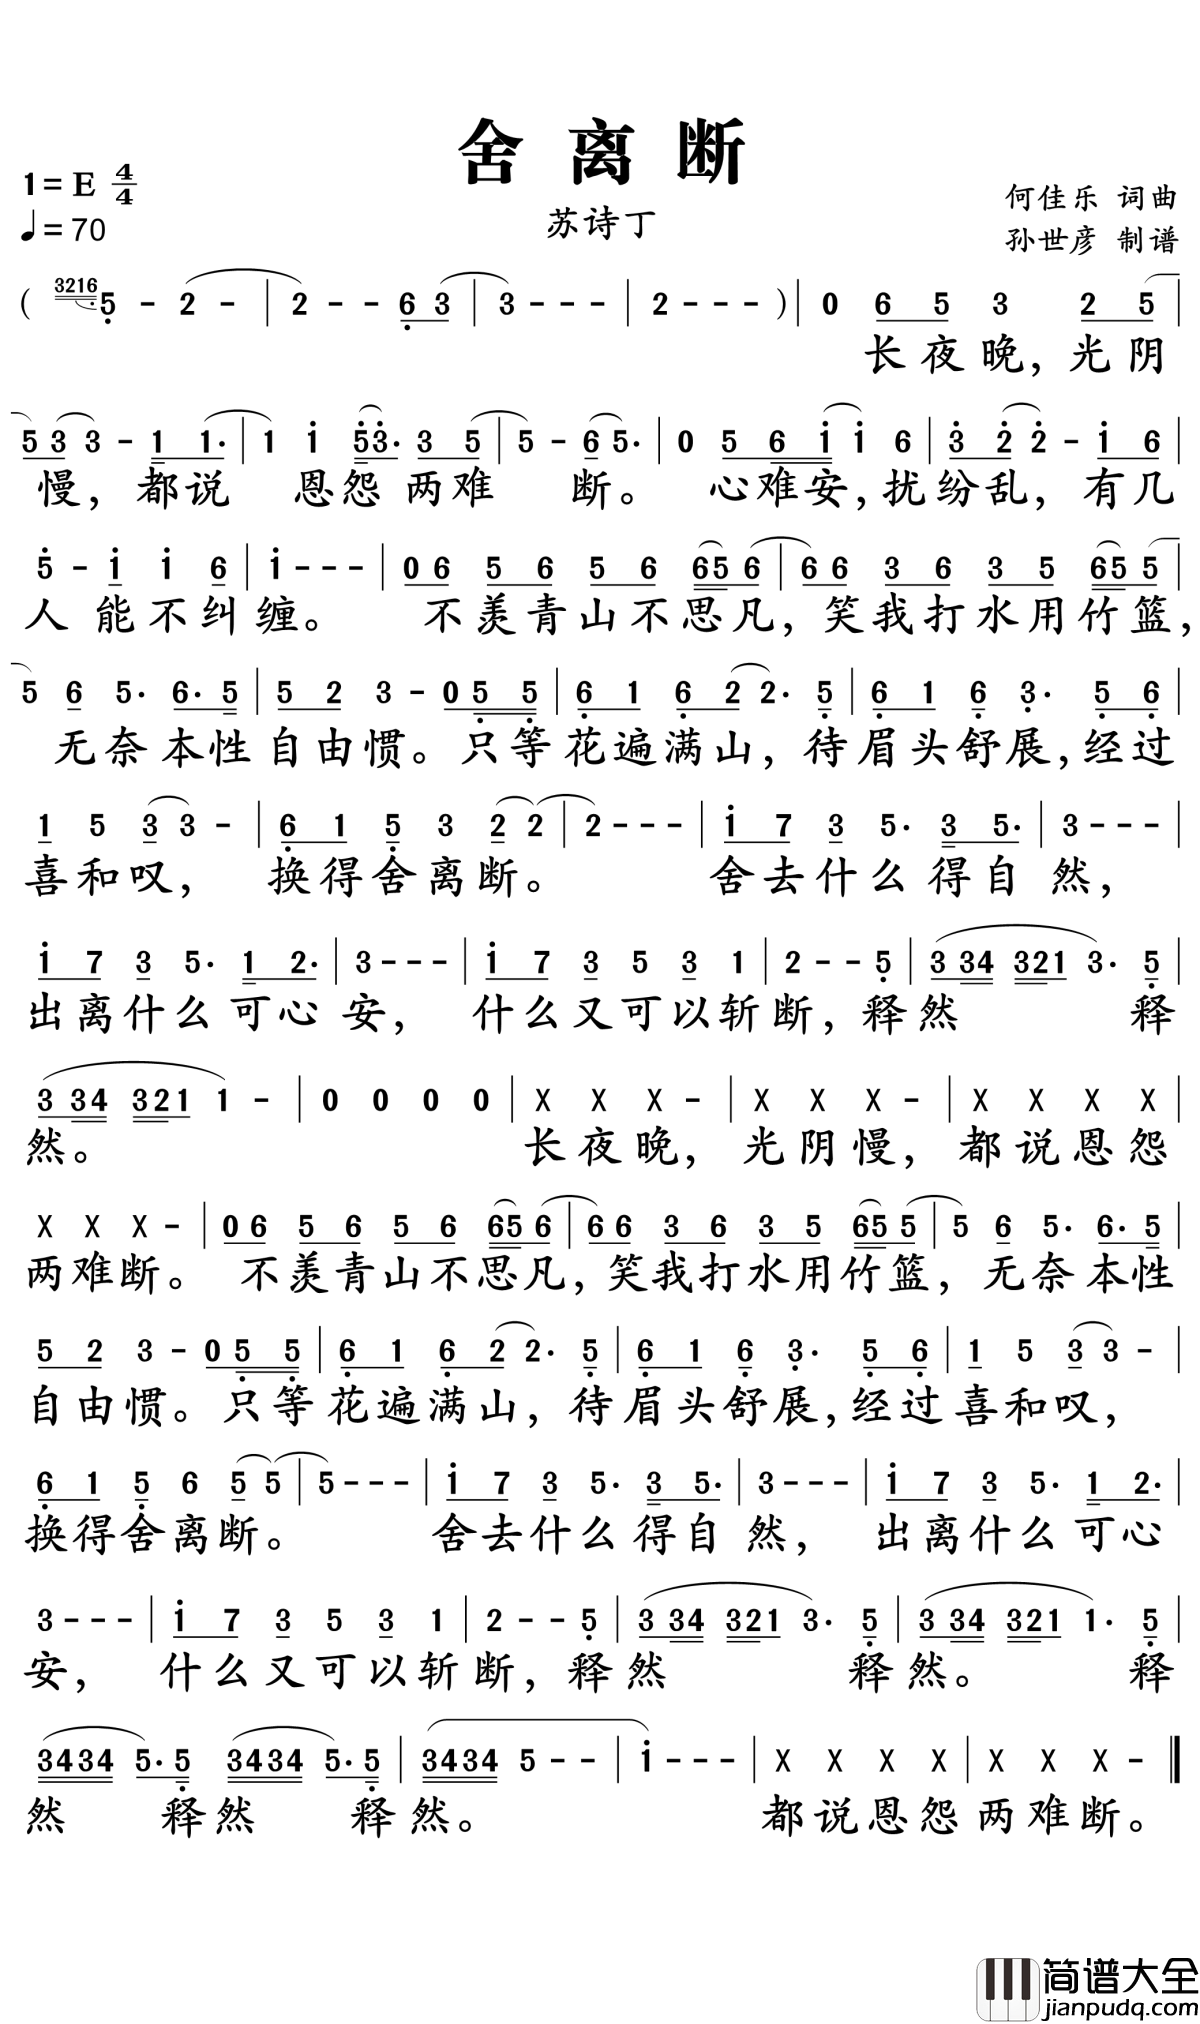 舍离断
1=E 4/4
♩=70
苏诗丁
何佳乐 词曲
孙世彦 制谱
( 3216 5 - 2 - | 2 - - 6 3 | 3 - - - | 2 - - - ) | 0 6 5 3 2 5 |
长夜晚，光阴
5 3 3 - 1 1· | 1 i 5 3· 3 5 | 5 - 6 5· | 0 5 6 i i 6 | 3 2 2 - i 6 |
慢，都说 恩怨 两难 断。 心难安，扰纷乱，有几
5 - i i 6 | i - - - | 0 6 5 6 5 6 6 5 6 | 6 6 3 6 3 5 6 5 5 |
人 能不纠缠。 不羡青山不思凡，笑我打水用竹篮，
5 6 5· 6· 5 | 5 2 3 - 0 5 5 | 6 1 6 2 2· 5 | 6 1 6 3· 5 6 |
无奈本性自由惯。只等花遍满山，待眉头舒展，经过
1 5 3 3 - | 6 1 5 3 2 2 | 2 - - - | i 7 3 5· 3 5· | 3 - - - |
喜和叹， 换得舍离断。 舍去什么得自然，
i 7 3 5· 1 2· | 3 - - - | i 7 3 5 3 1 | 2 - - 5 | 3 3 4 3 2 1 3· 5 |
出离什么可心安， 什么又可以斩断，释然 释
3 3 4 3 2 1 1 - | 0 0 0 0 | X X X - | X X X - | X X X X |
然。 长夜晚，光阴慢，都说恩怨
X X X - | 0 6 5 6 5 6 6 5 6 | 6 6 3 6 3 5 6 5 5 | 5 6 5· 6· 5 |
两难断。 不羡青山不思凡，笑我打水用竹篮，无奈本性
5 2 3 - 0 5 5 | 6 1 6 2 2· 5 | 6 1 6 3· 5 6 | 1 5 3 3 - |
自由惯。只等花遍满山，待眉头舒展，经过喜和叹，
6 1 5 6 5 5 | 5 - - - | i 7 3 5· 3 5· | 3 - - - | i 7 3 5· 1 2· |
换得舍离断。 舍去什么得自然， 出离什么可心
3 - - - | i 7 3 5 3 1 | 2 - - 5 | 3 3 4 3 2 1 3· 5 | 3 3 4 3 2 1 1· 5 |
安， 什么又可以斩断，释然 释然。 释
3 4 3 4 5· 5 3 4 3 4 5· 5 | 3 4 3 4 5 - - | i - - - | X X X X | X X X - ‖
然 释然 释然。 都说恩怨两难断。
简谱大全
jianpudq.com